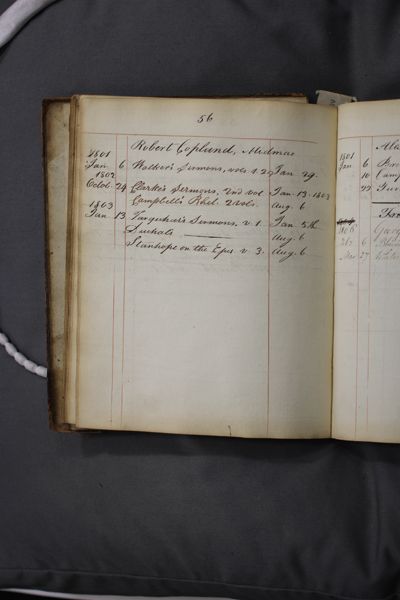 56
Robert Copland, Midmar
1801
Jan. 6 Walker's Sermons, vols 1.2. Jan. 29.
1802
Octob. 24 Clarke's Sermons, 2nd vol Jan. 13. 1803
Campbell's Rhet. 2 vols. Aug. 6
1803
Jan 13 Farquhar's Sermons, v. 1. Jan. 5th
Aug. 6
Stanhope on the Epis. v. 3. Aug. 6
1801
Jan 6
10